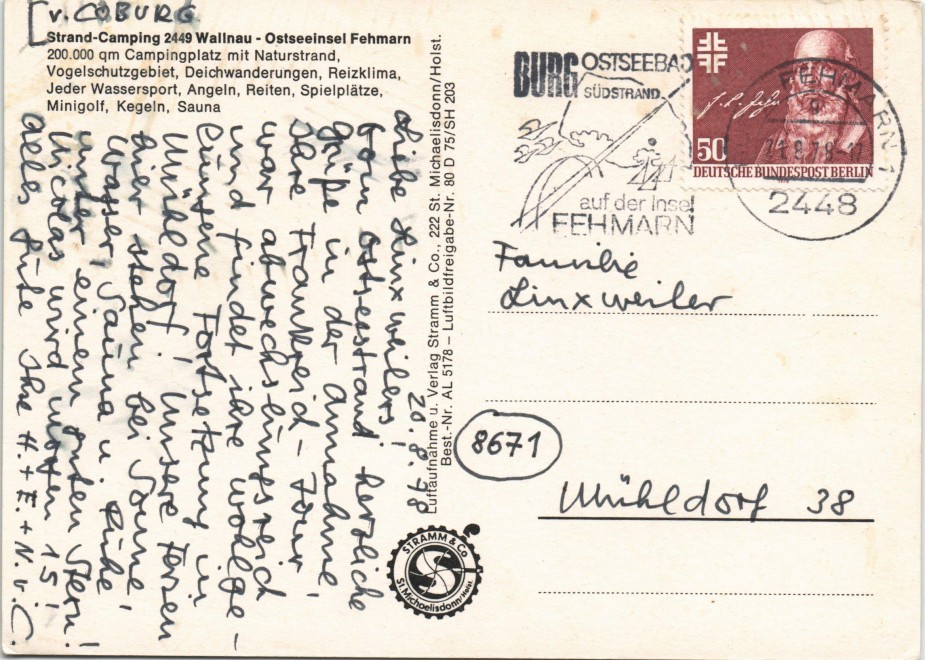 [v. COBURG
Strand-Camping 2449 Wallnau - Ostseeinsel Fehmarn
200.000 qm Campingplatz mit Naturstrand,
Vogelschutzgebiet, Deichwanderungen, Reizklima,
Jeder Wassersport, Angeln, Reiten, Spielplätze,
Minigolf, Kegeln, Sauna
20.8.78
Liebe Linxweilers!
Vom Ostseestrand herzliche
Grüße in der Annahme,
dass Frankreich-Tour
war abwechslungsreich
und findet ihre wohlge-
lungene Fortsetzung in
Mühldorf! Unsere Ferien
hier stehen bei Sonne,
Wasser, Sauna u. Ruhe
unter einem guten Stern!
Nicolas wird morgen 15!
Alles Gute Ihre H.+E.+N.v.C.
Luftaufnahme u. Verlag Stramm & Co., 222 St. Michaelisdonn/Holst.
Best.-Nr. AL 5178 – Luftbildfreigabe-Nr. 80 D 75/SH 203
STRAMM & Co
St. Michaelisdonn/Holst.
BURG OSTSEEBAD
SÜDSTRAND
auf der Insel
FEHMARN
50
DEUTSCHE BUNDESPOST BERLIN
FEHMARN 1
2448
Familie
Linxweiler
8671
Mühldorf 38